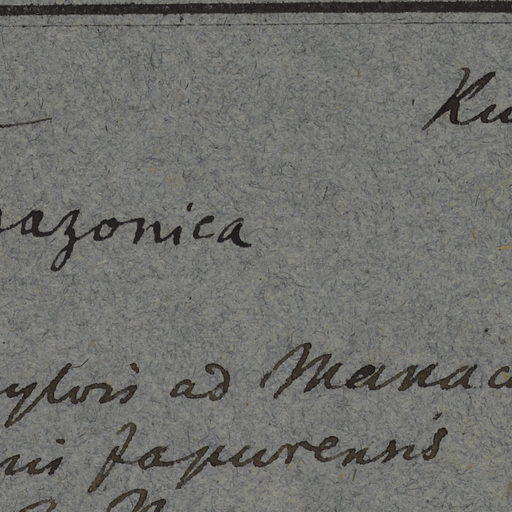 Ku
azonica
ylvis ad Manac
nii Japurensis